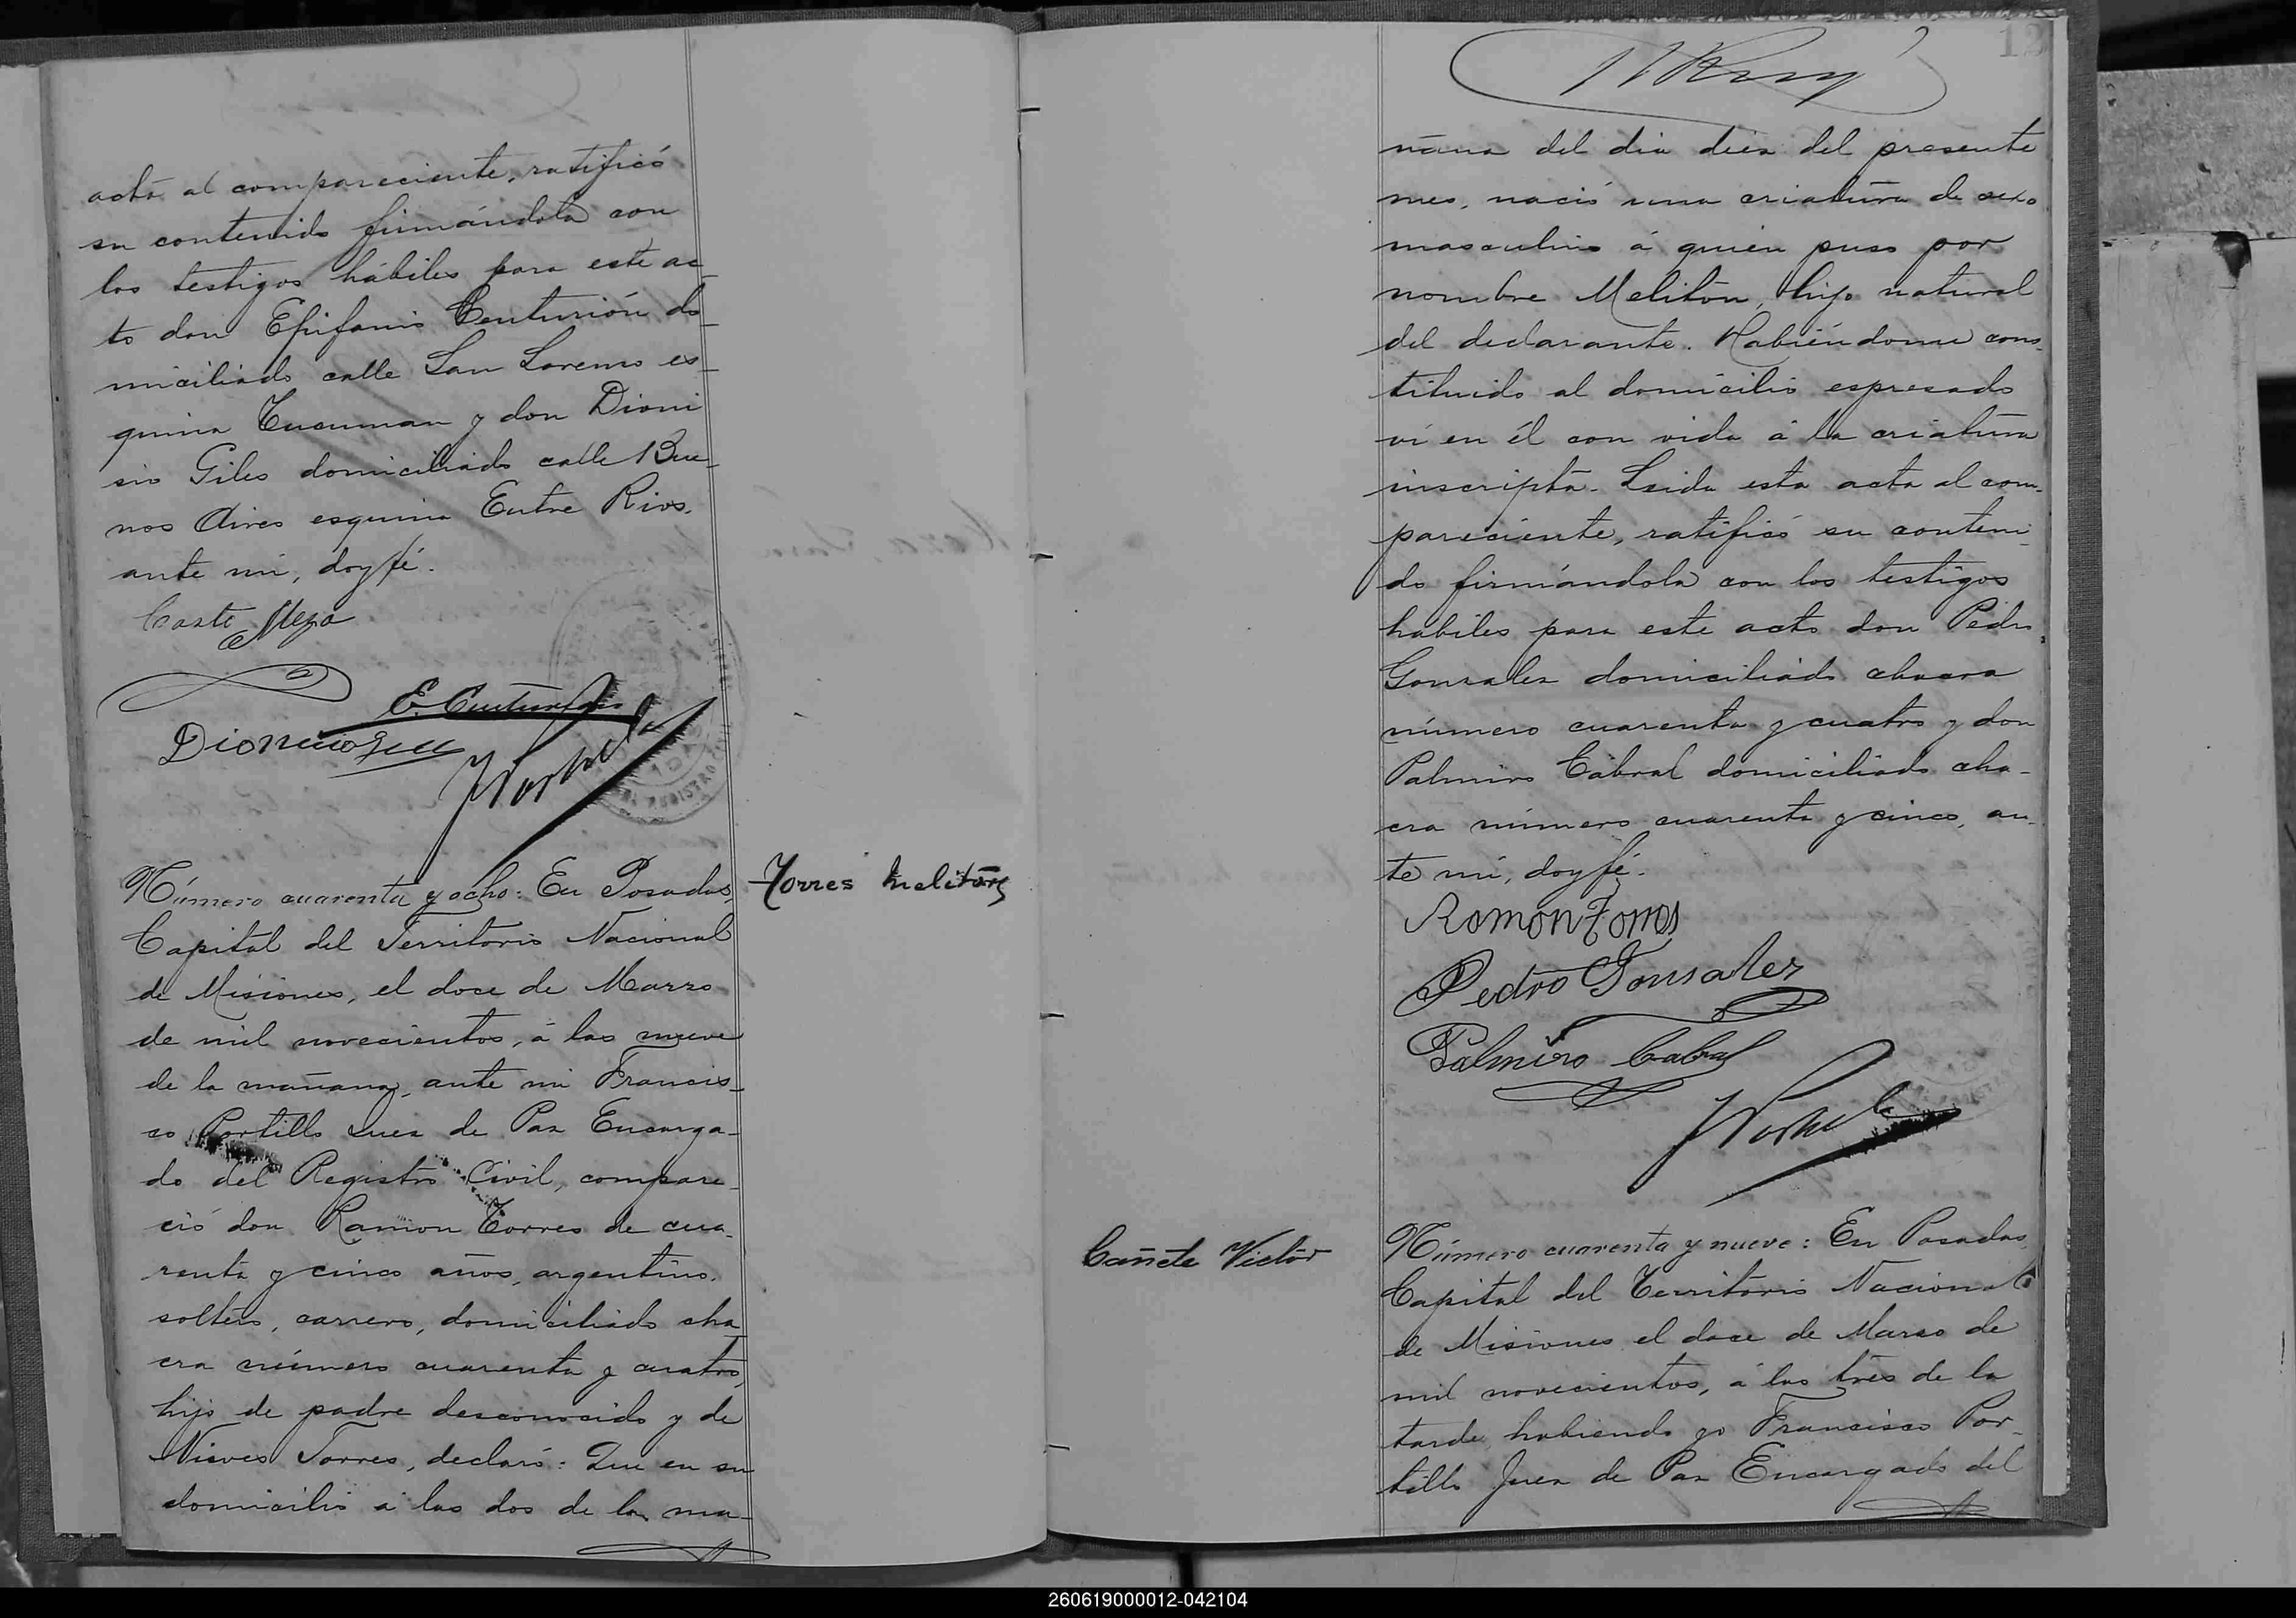 acta al compareciente, ratificó
su contenido firmándola con
los testigos hábiles para este ac_
to don Epifanio Centurión do_
miciliado calle San Lorenso es_
quina Tucuman y don Dioni
sio Giles domiciliado calle Bue_
nos Aires esquina Entre Rios.
ante mi, doy fé.
Meza
E. Centurión
Número cuarenta y ocho: En Posadas,
Torres Meliton
Capital del Territorio Nacional
de Misiones, el doce de Marzo
de mil novecientos, á las nueve
de la mañana, ante mi Francis_
co Portillo Juez de Paz Encarga_
do del Registro Civil, compare_
ció don Ramon Torres de cua_
renta y cinco años, argentino,
soltero, carrero, domiciliado cha
cra número cuarenta y cuatro,
hijo de padre desconocido y de
Nieves Torres, declaró: Que en su
domicilio á las dos de la ma_
12
ñana del dia diez del presente
mes, nació una criatura de sexo
masculino á quien puso por
nombre Meliton, hijo natural
del declarante. Habiéndome cons_
tituido al domicilio espresado
ví en él con vida á la criatura
inscripta. Leida esta acta al com_
pareciente, ratificó su conteni_
do firmándola con los testigos
habiles para este acto don Pedro
Gonzalez domiciliado chacra
número cuarenta y cuatro y don
Palmiro Cabral domiciliado cha_
cra número cuarenta y cinco, an_
te mi, doy fé.
Ramon Torres
Pedro Gonsalez
Palmiro Cabral
Cañete Victor
Número cuarenta y nueve: En Posadas,
Capital del Territorio Nacional
de Misiones el doce de Marzo de
mil novecientos, á las tres de la
tarde, habiendo yo Francisco Por_
tillo Juez de Paz Encargado del
260619000012-042104